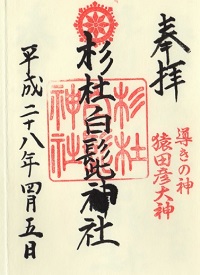 奉拝
導きの神
猿田彦大神
杉杜白髭神社
杉杜
白髭
神社
平成二十八年四月五日